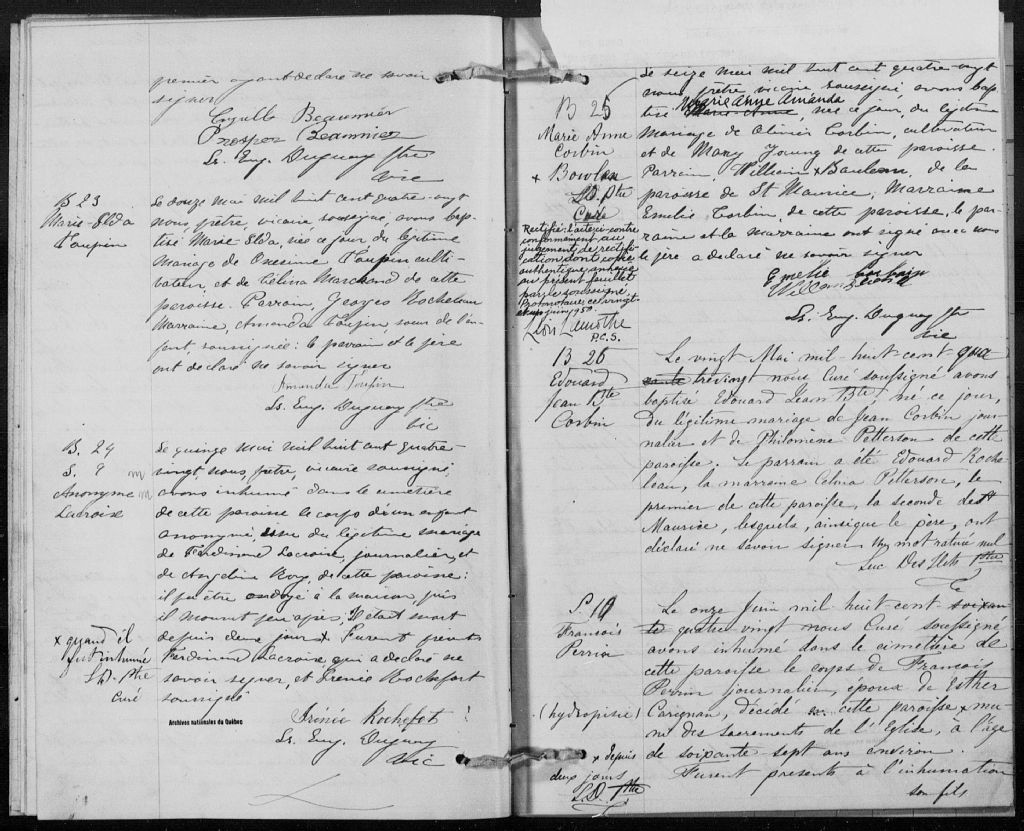 premier ayant declaré ne savoir
signer
Cyrille Beaumier
Prosper Beaumier
Ls. Eug. Duguay Ptre
Vic
B 23
Marie-Elda
Toupin
Le douze mai mil huit cent quatre-vgt
nous, prêtre, vicaire soussigné, avons bap-
tisé Marie-Elda, née ce jour du légitime
mariage de Onesime Toupin culti-
vateur, et de Célina Marchand de cette
paroisse. Parrain, Georges Rocheleau
Marraine, Amanda Toupin, sœur de l'en-
fant, soussignée: le parrain et le père
ont déclaré ne savoir signer
Amanda Toupin
Ls. Eug. Duguay Ptre
Vic
B. 24
S. 9 m
Anonyme m
Lacroix
Le quinze mai mil huit cent quatre
vingt, nous, prêtre, vicaire soussigné,
avons inhumé dans le cimetière
de cette paroisse le corps d'un enfant
anonyme, issu du légitime mariage
de Ferdinand Lacroix, journalier, et
de Angéline Roy, de cette paroisse:
il fut être ondoyé à la maison, puis
il mourut peu après. Il était mort
depuis deux jours x Furent présents
Ferdinand Lacroix qui a déclaré ne
savoir signer, et Irénée Rochefort
soussigné
x quand il
fut inhumé
L D. Ptre
Curé
Archives nationales du Québec
Irénée Rochefot
Ls. Eug. Duguay
Vic
B 25
Marie Anne
Corbin
x Bowlen
L D. Ptre
Curé
Rectifié: l'acte ci-contre
conformément au
jugement de rectifi-
cation dont copie
authentique annexée
au présent feuillet
par le soussigné
Protonotaire, ce vingt
et un juin 1950.
Léon Lamothe
P.C.S.
Le seize mai mil huit cent quatre-vgt
nous, prêtre vicaire soussigné avons bap-
Marie Anne Amanda
tisé Marie-Anne, née ce jour, du légitime
mariage de Olivier Corbin, cultivateur
et de Mary Young de cette paroisse.
Parrain, William x de la
paroisse de St Maurice, Marraine
Emelie Corbin, de cette paroisse, le par-
raine et la marraine ont signé avec nous
le père a déclaré ne savoir signer
Emelie Corbin
Ls. Eug. Duguay Ptre
Vic
B 26
Edouard
Jean Bte
Corbin
Le vingt Mai mil huit cent qua
rante trevingt nous Curé soussigné avons
baptisé Edouard Jean Bte né ce jour,
du légitime mariage de Jean Corbin jour
nalier et de Philomène Petterson de cette
paroisse. Le parrain a été Edouard Roche
leau, la marraine Celina Petterson, le
premier de cette paroisse, la seconde de St
Maurice, lesquels, ainsi que le père, ont
déclaré ne savoir signer Un mot raturé nul
Luc Desilets Ptre
S. 10
Francois
Perrin
(hydropisie)
x depuis
deux jours
L.D. Ptre
Le onze Juin mil huit cent soixan
te quatre vingt nous Curé soussigné
avons inhumé dans le cimetière de
cette paroisse le corps de Francois
Perrin journalier, époux de Esther
Carignan, décédé en cette paroisse x mu-
ni des sacrements de l'Eglise, à l'âge
de soixante-sept ans environ.
Furent presents à l'inhumation
son fils